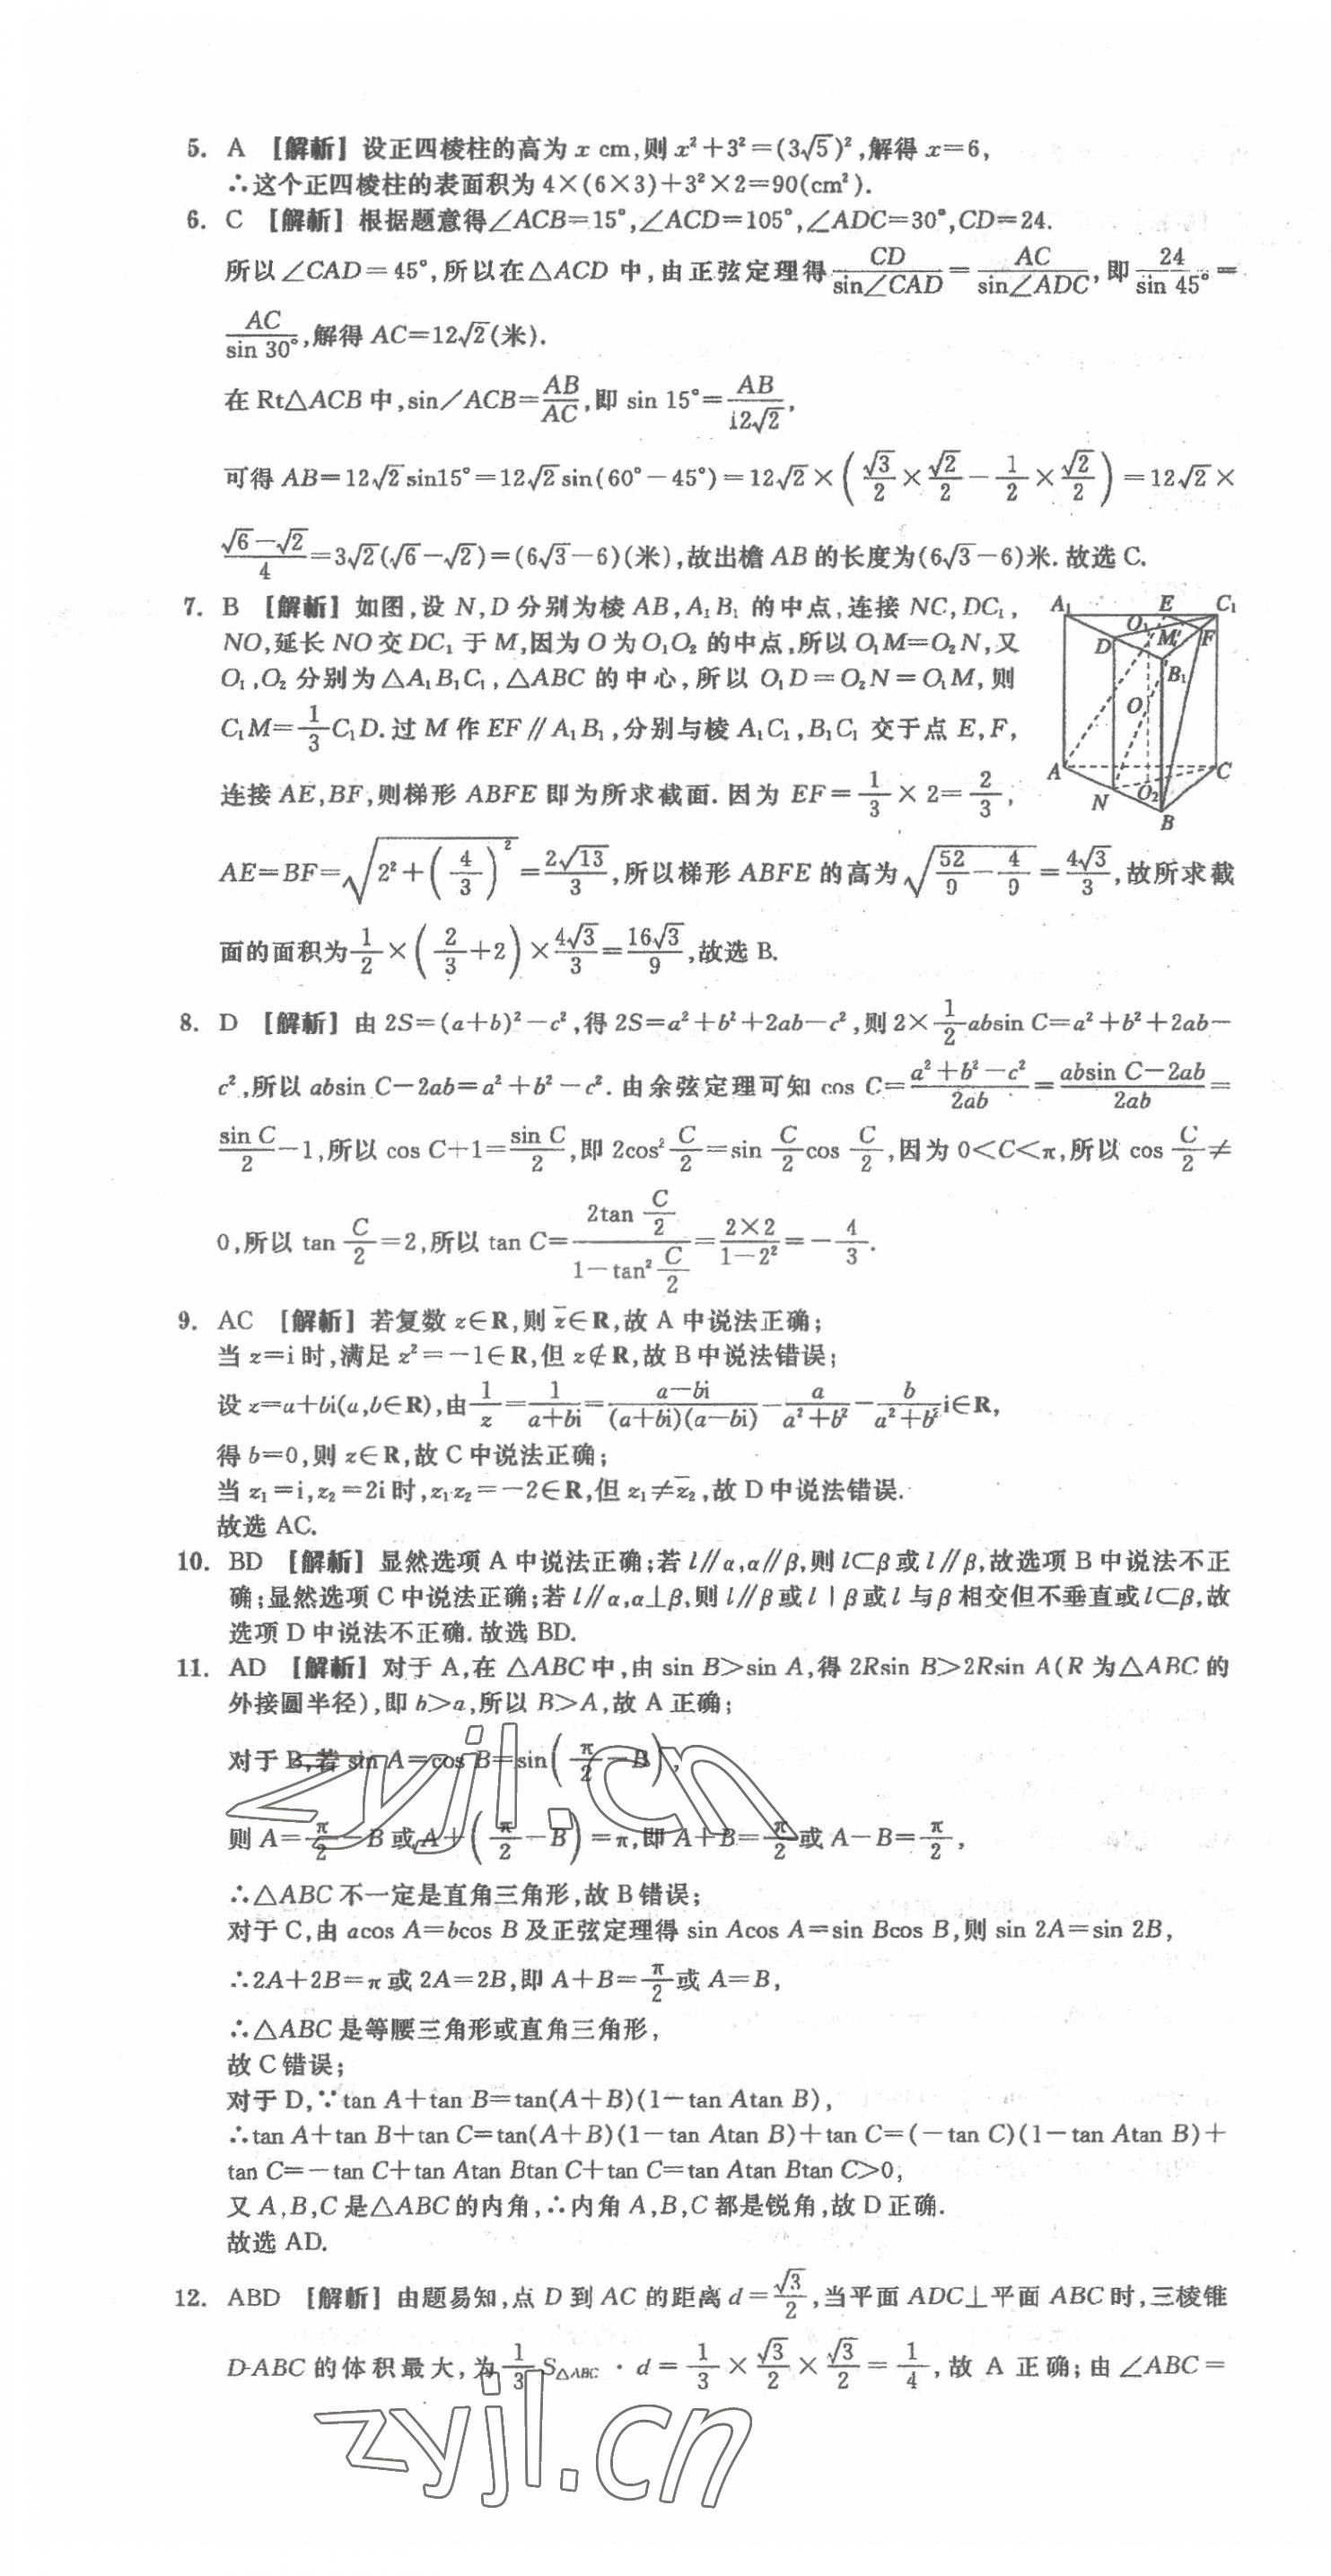 5. A 【解析】设正四棱柱的高为 x cm,则 x²+3²=(3√5)²,解得 x=6,
∴这个正四棱柱的表面积为 4×(6×3)+3²×2=90(cm²).
6. C 【解析】根据题意得∠ACB=15°,∠ACD=105°,∠ADC=30°,CD=24.
所以∠CAD=45°,所以在△ACD 中,由正弦定理得 CD/sin∠CAD = AC/sin∠ADC,即 24/sin 45° =
AC/sin 30°,解得 AC=12√2(米).
在 Rt△ACB 中,sin∠ACB=AB/AC,即 sin 15°=AB/12√2,
可得 AB=12√2 sin15°=12√2 sin(60°-45°)=12√2×(√3/2×√2/2-1/2×√2/2)=12√2×
(√6-√2)/4=3√2(√6-√2)=(6√3-6)(米),故出檐 AB 的长度为(6√3-6)米.故选 C.
7. B 【解析】如图,设 N,D 分别为棱 AB,A₁B₁ 的中点,连接 NC,DC₁,
NO,延长 NO 交 DC₁ 于 M,因为 O 为 O₁O₂ 的中点,所以 O₁M=O₂N,又
O₁,O₂ 分别为△A₁B₁C₁,△ABC 的中心,所以 O₁D=O₂N=O₁M,则
C₁M=1/3 C₁D.过 M 作 EF∥A₁B₁,分别与棱 A₁C₁,B₁C₁ 交于点 E,F,
连接 AE,BF,则梯形 ABFE 即为所求截面.因为 EF=1/3×2=2/3,
A₁ E C₁
O₁ M F
D
B₁
O
A C
N O₂
B
AE=BF=√(2²+(4/3)²)=2√13/3,所以梯形 ABFE 的高为√(52/9-4/9)=4√3/3,故所求截
面的面积为1/2×(2/3+2)×4√3/3=16√3/9,故选 B.
8. D 【解析】由 2S=(a+b)²-c²,得 2S=a²+b²+2ab-c²,则 2×1/2 absin C=a²+b²+2ab-
c²,所以 absin C-2ab=a²+b²-c².由余弦定理可知 cos C=(a²+b²-c²)/2ab=(absin C-2ab)/2ab=
sin C/2-1,所以 cos C+1=sin C/2,即 2cos² C/2=sin C/2 cos C/2,因为 0<C<π,所以 cos C/2≠
0,所以 tan C/2=2,所以 tan C=2tan C/2/(1-tan² C/2)=2×2/(1-2²)=-4/3.
9. AC 【解析】若复数 z∈R,则 z̄∈R,故 A 中说法正确;
当 z=i 时,满足 z²=-1∈R,但 z∉R,故 B 中说法错误;
设 z=a+bi(a,b∈R),由1/z=1/(a+bi)=(a-bi)/((a+bi)(a-bi))=a/(a²+b²)-b/(a²+b²)i∈R,
得 b=0,则 z∈R,故 C 中说法正确;
当 z₁=i,z₂=2i 时,z₁z₂=-2∈R,但 z₁≠z̄₂,故 D 中说法错误.
故选 AC.
10. BD 【解析】显然选项 A 中说法正确;若 l∥α,α∥β,则 l⊂β或 l∥β,故选项 B 中说法不正
确;显然选项 C 中说法正确;若 l∥α,α⊥β,则 l∥β或 l⊥β或 l 与β相交但不垂直或 l⊂β,故
选项 D 中说法不正确.故选 BD.
11. AD 【解析】对于 A,在△ABC 中,由 sin B>sin A,得 2Rsin B>2Rsin A(R 为△ABC 的
外接圆半径),即 b>a,所以 B>A,故 A 正确;
对于 B,若 sin A=cos B=sin(π/2-B),
则 A=π/2-B 或 A+(π/2-B)=π,即 A+B=π/2或 A-B=π/2,
∴△ABC 不一定是直角三角形,故 B 错误;
对于 C,由 acos A=bcos B 及正弦定理得 sin Acos A=sin Bcos B,则 sin 2A=sin 2B,
∴2A+2B=π或 2A=2B,即 A+B=π/2或 A=B,
∴△ABC 是等腰三角形或直角三角形,
故 C 错误;
对于 D,∵tan A+tan B=tan(A+B)(1-tan Atan B),
∴tan A+tan B+tan C=tan(A+B)(1-tan Atan B)+tan C=(-tan C)(1-tan Atan B)+
tan C=-tan C+tan Atan Btan C+tan C=tan Atan Btan C>0,
又 A,B,C 是△ABC 的内角,∴内角 A,B,C 都是锐角,故 D 正确.
故选 AD.
zyjl.cn
12. ABD 【解析】由题易知,点 D 到 AC 的距离 d=√3/2,当平面 ADC⊥平面 ABC 时,三棱锥
D-ABC 的体积最大,为1/3 S△ABC·d=1/3×√3/2×√3/2=1/4,故 A 正确;由∠ABC=
zyjl.cn